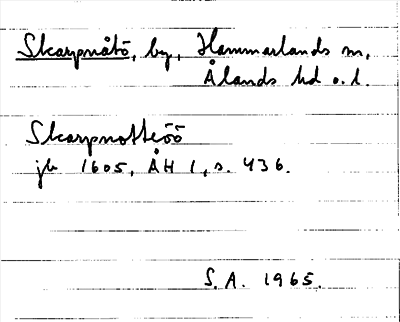 Skarpnåtö, by, Hammarlands sn,
Ålands hd o. l.
Skarpnotteöö
jb 1605, ÅH 1, s. 436.
S.A. 1965.